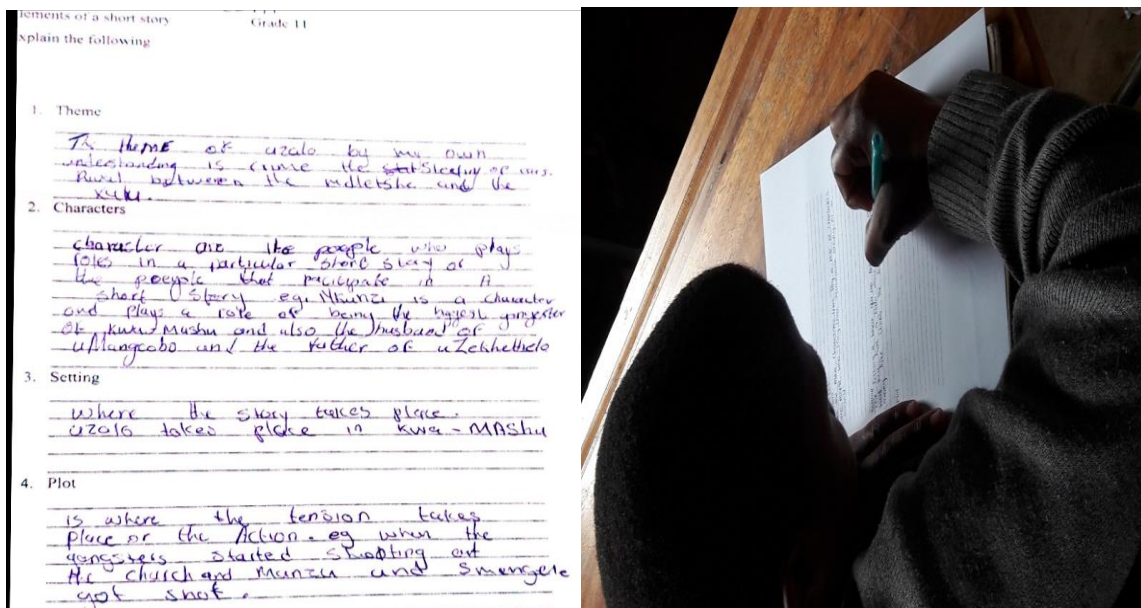 lements of a short story
Grade 11
xplain the following
1. Theme
The theme of uzalo by my own
understanding is crime the stealing of cars.
Rival between the mdletshe and the
xulu.
2. Characters
character are the people who plays
roles in a particular short stay or
the poeyple that paticipate in A
short Story eg. Nkunzi is a character
and plays a role of being the biggest gangster
of kwa Mashu and also the husband of
uMangcobo and the father of uZekhethelo
3. Setting
Where the story takes place.
uzolo takes place in kwa-MAShu
4. Plot
is where the tension takes
place or the Action. eg when the
gangsters started shooting out
the church and Manzu and Smangele
got shot.